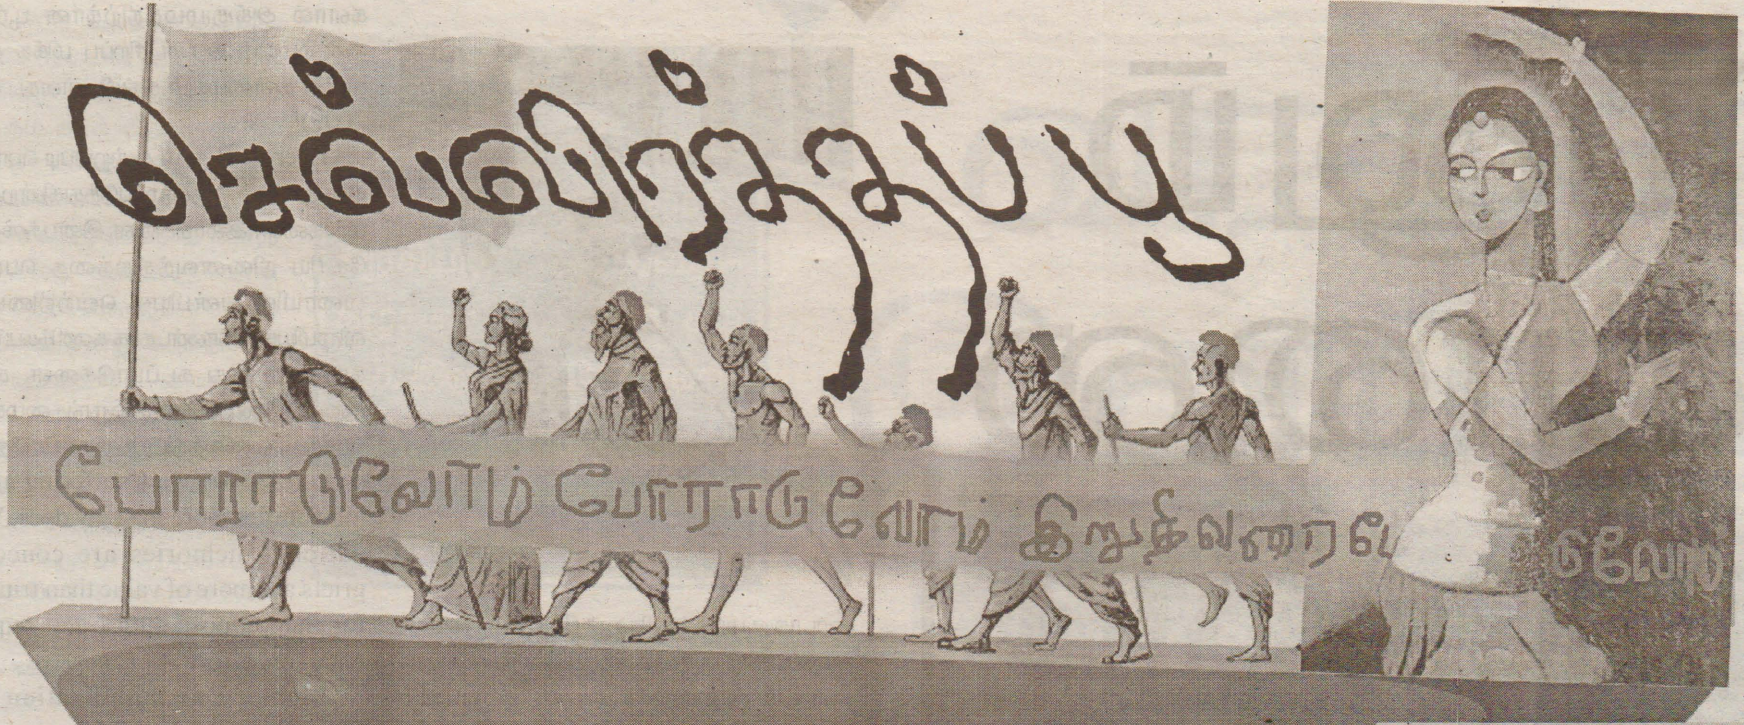 செவ்விர்ததப்பூ
போராடுவோம் போராடுவோம் இறுதிவரை டுவோம்